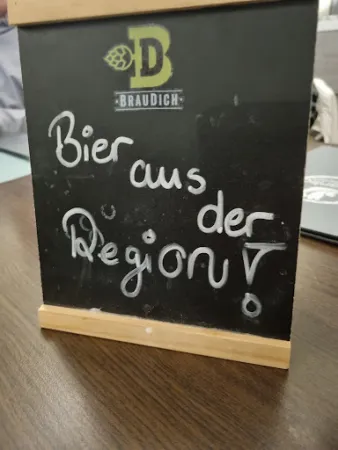 BD
BRAUDICH
Bier
aus
der
Region!